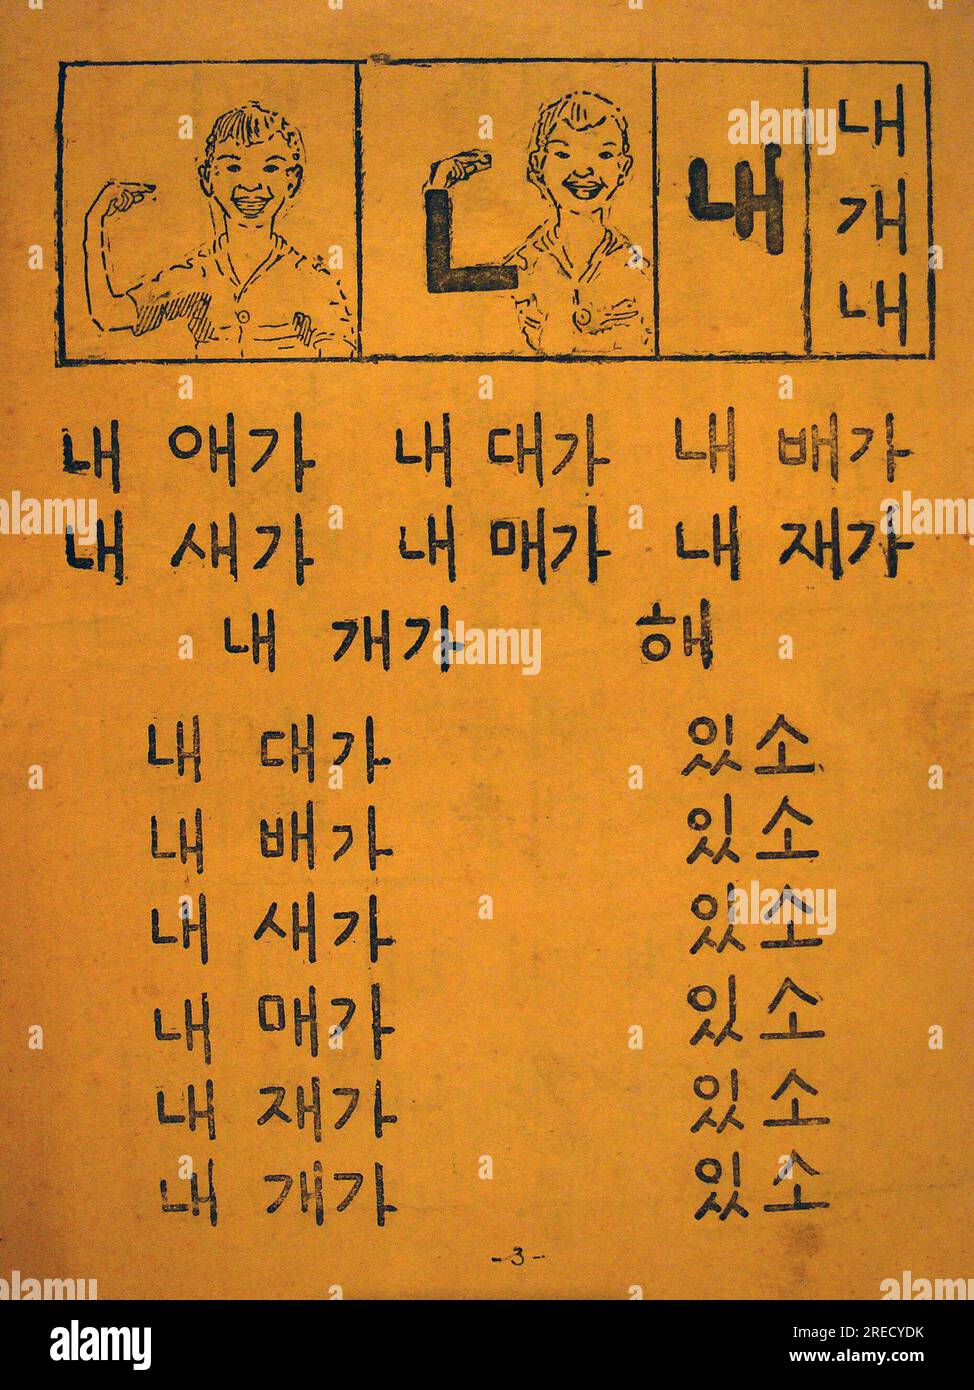 ㄴ 내 내
개
내
내 애가 내 대가 내 배가
내 새가 내 매가 내 재가
내 개가 해
내 대가 있소
내 배가 있소
내 새가 있소
내 매가 있소
내 재가 있소
내 개가 있소
-3-
alamy
Image ID: 2RECYDK
www.alamy.com